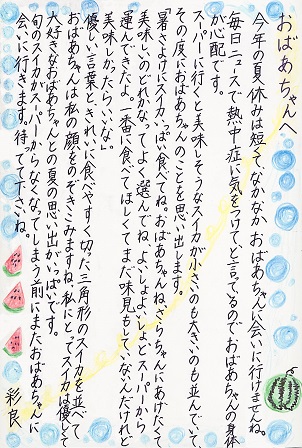 おばあちゃんへ
今年の夏休みは短くて、なかなかおばあちゃんに会いに行けませんね。
毎日ニュースで熱中症に気をつけて、と言ってるのでおばあちゃんの身
が心配です。
スーパーに行くと美味しそうなスイカが小さいのも大きいのも並んでいて
その度におばあちゃんのことを思い出します。
「暑さよけにスイカいっぱい食べてね。おばあちゃんね、さらちゃんにあげたくて
美味しいのどれかなってよく選んでね、よいしょよいしょとスーパーから
運んできたよ。一番に食べてほしくてまだ味見もしていないんだけれど
美味しかったらいいな」
優しい言葉と、きれいに食べやすく切った三角形のスイカを並べて
おばあちゃんは私の顔をのぞきこみますね。私にとってスイカは優しくて
大好きなおばあちゃんとの夏の思い出がいっぱいです。
旬のスイカがスーパーからなくなってしまう前にまたおばあちゃんに
会いに行きます。待ってて下さいね。
彩良